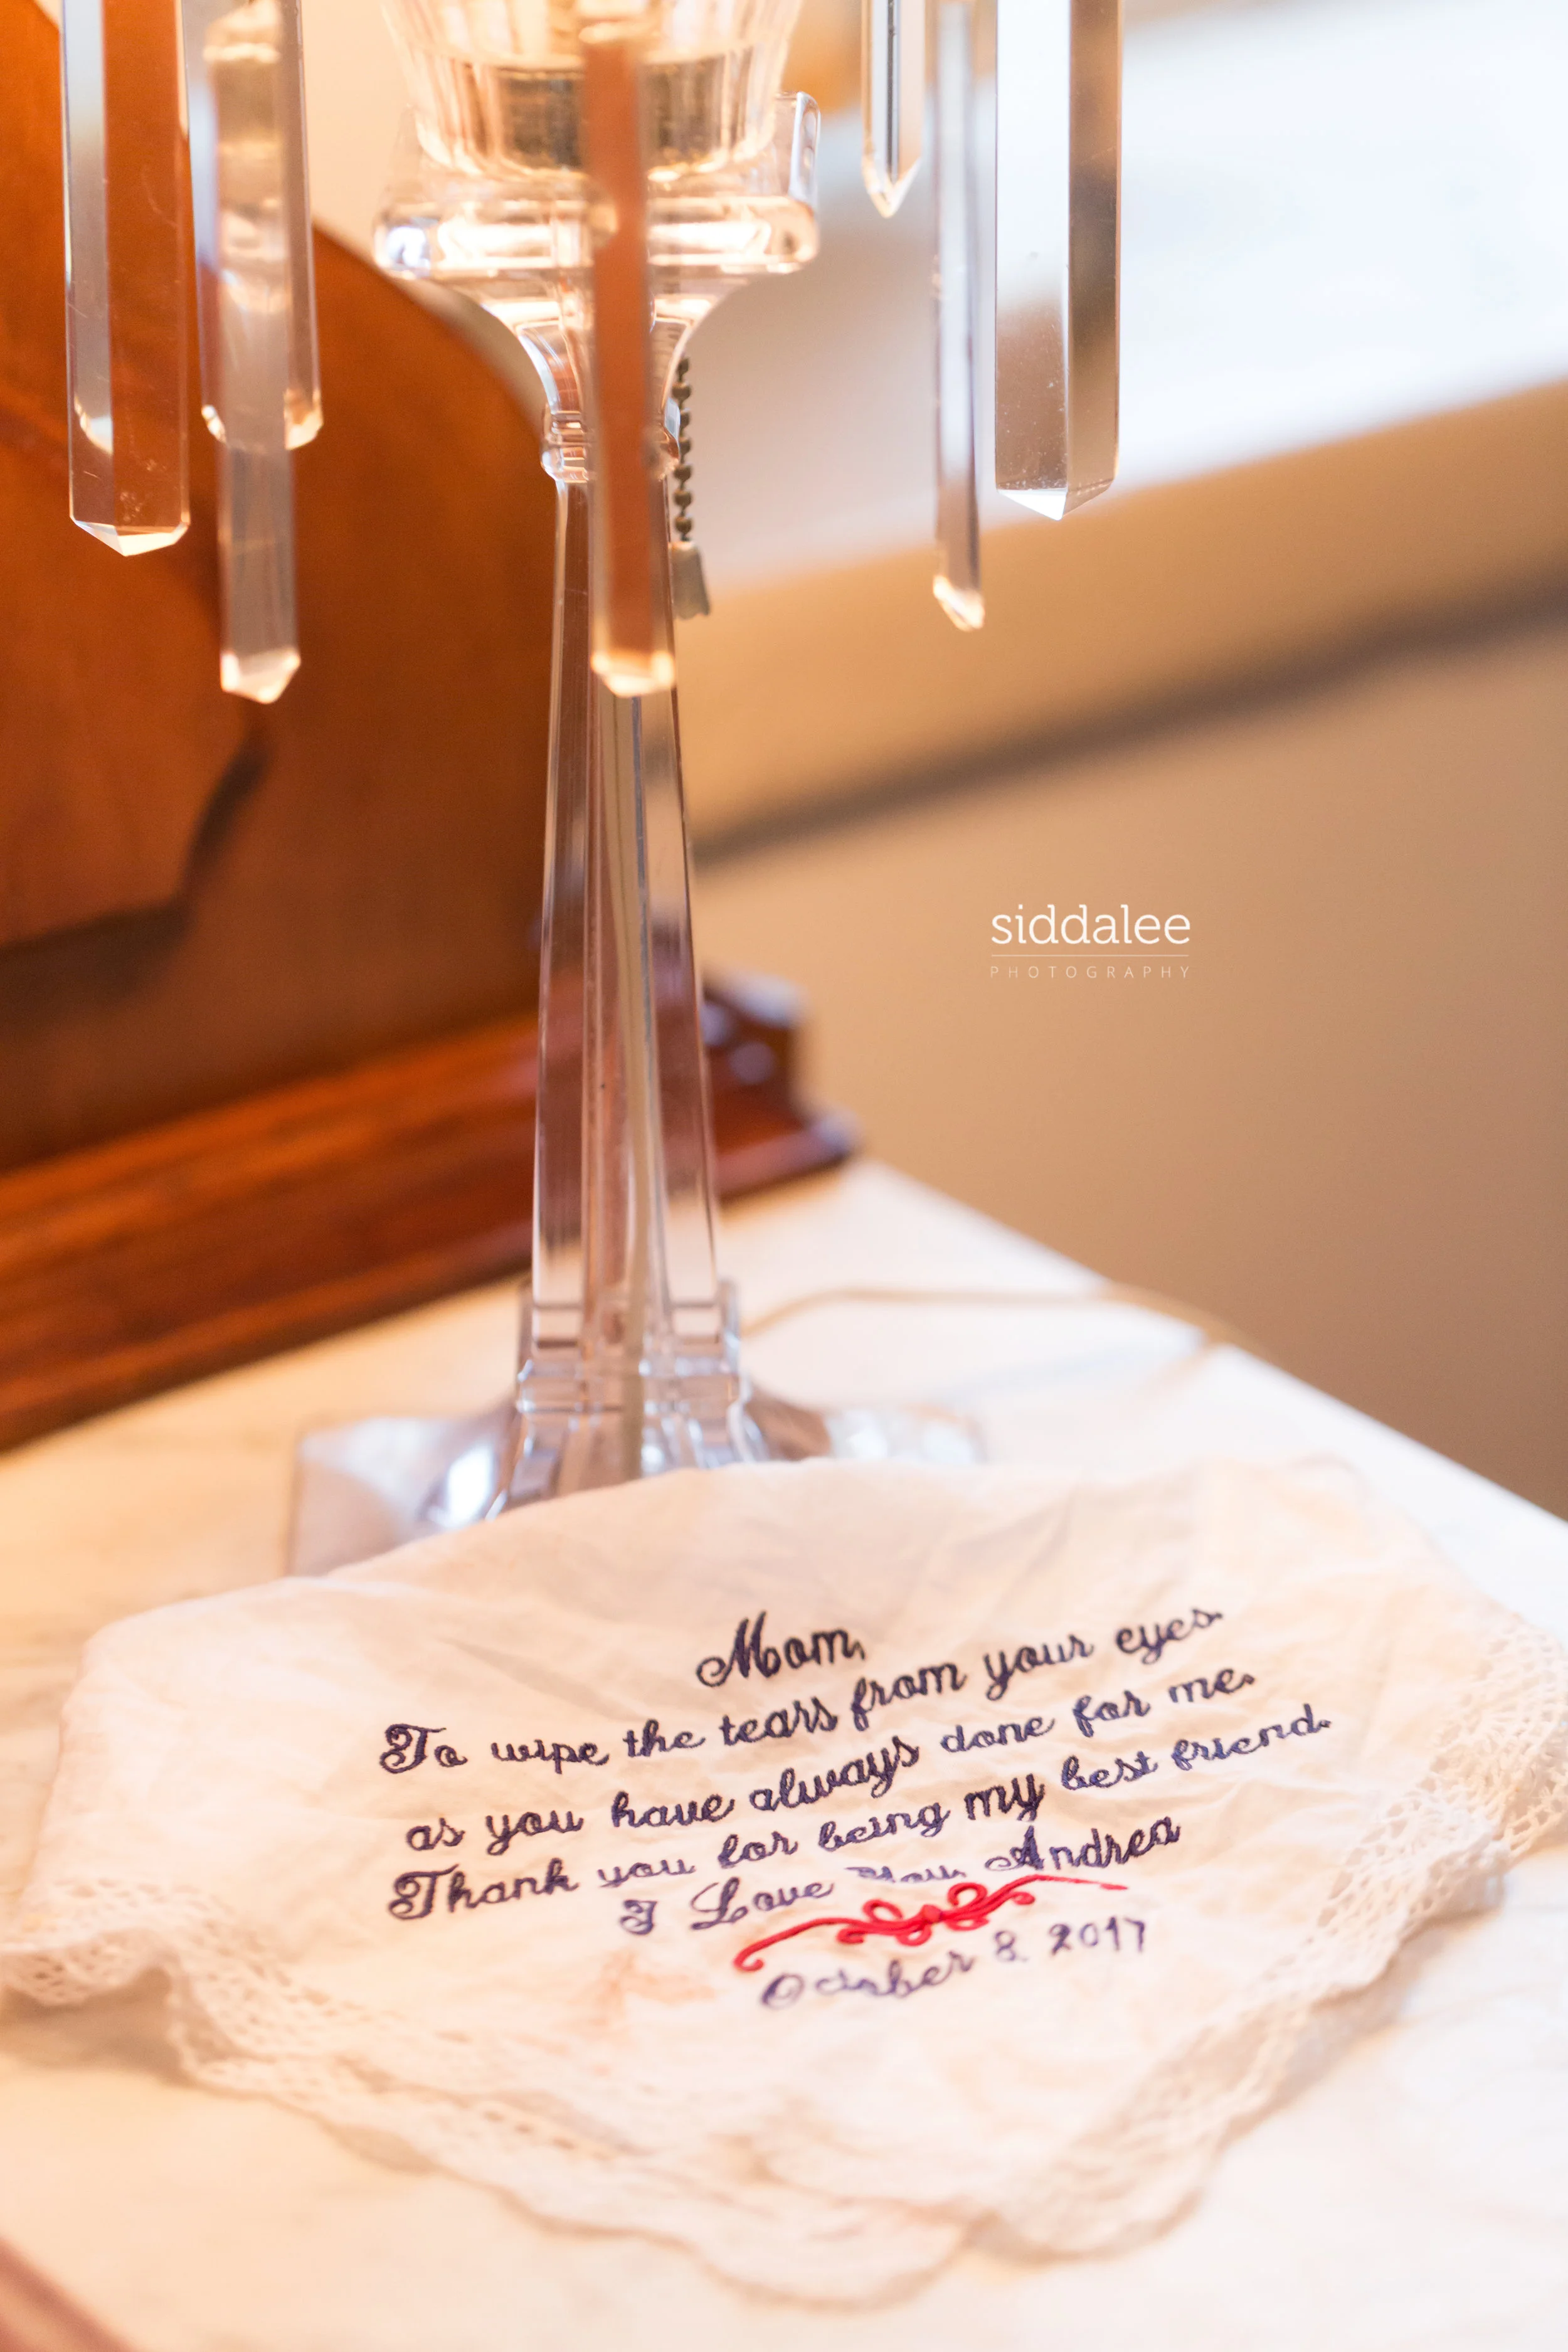 siddalee
PHOTOGRAPHY
Mom,
To wipe the tears from your eyes.
as you have always done for me.
Thank you for being my best friend.
I Love You, Andrea
October 8, 2017